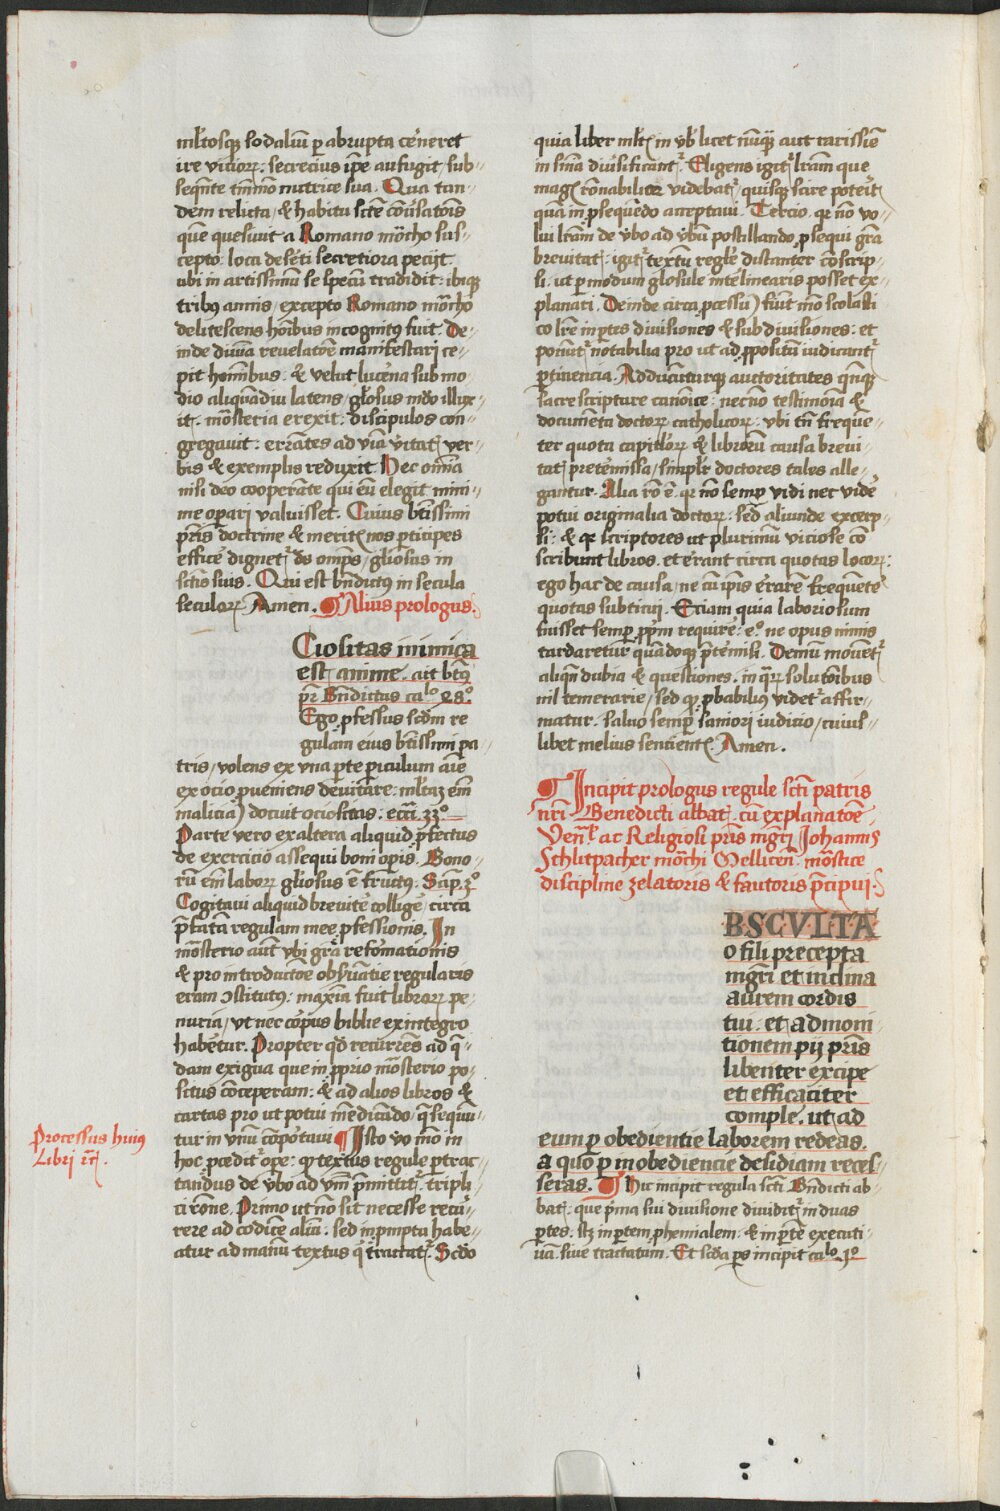 ml̄tosq sodaliū p abrupta c̄neret
ire vicioꝝ: secrecius ip̄e aufugit / sub-
seqn̄te tm̄mo nutrice sua. Qua tan-
dem relicta / & habitu scte ꝯ̄usatōis
quē quesiuit a Romano mōcho sus-
cepto: loci deserti secretiora pecijt
ubi in artissimū se specū tradidit: ibiqꝫ
tribꝰ annis / excepto Romano mōcho
delitescens hoībus incognitꝰ fuit. De-
inde diuīa reuelatōe manifestari ce-
pit hoīnibus. & velut lucerna sub mo-
dio aliquādiu latens / gl̄osus mdo illux-
it: mōsteria erexit: discipulos con-
gregauit: errātes ad viā v̄itatꝭ ver-
bis & exemplis reduxit. Hec omīa
nisi deo cooperante qui eū elegit mini-
me operari valuisset. Cuius btīssimi
pr̄is doctrine & meritꝭ nos pticipes
efficē dignetᷣ ds om̄ps / gl̄iosus in
scīs suis. Qui est bn̄dictꝰ in secula
seculoꝝ Amen. ¶ Alius prologus.
Ciositas inimica
est anime. ait btꝰ
pr̄ Bn̄dictus caꝉo 48.o
Ego pfessus scd̄m re
gulam eius btīssimi pa-
tris / volens ex vna pte piculum aīe
ex ocio pueniens deuitare: ml̄taꝫ em̄
maliciā docuit ociositas: ecc̄i 33o
Parte vero ex altera aliquid pfectus
de exercicio assequi boni opis. Bono-
rū em̄ laboꝝ gl̄iosus ē fructꝰ. Sap. 3o
Cogitaui aliquid breuitē collige circa
p̄fatā regulam mee pfessionis. In
mōsterio aūt vbi grā refomationis
& pro introductōe obsūatie regularis
eram ꝯstitutꝰ: maxīa fuit libroꝝ pe-
nuria / vt nec corpus biblie ex integro
habētur. Propter qd̄ recurrēs ad q̄-
dam exigua que in pprio mōsterio po-
situs cōceperam: & ad alios libros &
cartas pro ut potui mēdicādo q̄ sequū-
tur in vnū cōportaui ¶ Isto vo mō in
hoc pceditᷣ ope: qꝫ textus regule ptrac-
tandus de v̄bo ad vm̄ pmittitᷣ. tripli-
ci rōne. Primo ut nō sit necesse recu-
rere ad codicē aliū: sed in pmptu habe-
atur ad manū textus q̄ tractatᷣ. Scd̄o
Processus huiꝰ
Libri
quia liber ml̄tꝭ in v̄bꝭ licet nūqꝫ aut rarissiē
in sn̄ia diuisificantᷣ. Eligens igitᷣ lr̄am que
magꝭ rōnabiliter videbatᷣ / quisqꝫ scire poterit
quā in psequēdo acceptaui. Tercio. qꝛ nō vo-
lui lr̄am de v̄bo ad v̄bū postillando psequi grā
breuitatꝭ: igitᷣ textū regl̄e distanter cōscrip-
si. ut p modum glosule int̄elinearis posset ex-
planari. Deinde circa pcessū fiūt mō scolasti
co lr̄e in ptes diuisiones & sub diuisiones: et
ponūtᷣ notabilia pro ut ad ppositū iudicantᷣ
ptinencia. Adducūturqꝫ auctoritates qn̄qꝫ
sacre scripture canōice: necnō testimoīa &
documēta doctoꝝ catholicoꝝ: vbi tn̄ freque-
ter quota capitl̄oꝝ & libroꝝ causa breui-
tatꝭ pretermissa / simplr̄ doctores tales alle-
gantur. Alia rō ē. qꝛ nō semp vidi nec videre
potui originalia doctoꝝ: sed aliunde excerp-
si: & qꝛ scriptores ut plurimū viciose cō
scribunt libros. et errant circa quotas locoꝝ:
ego hac de causa / ne cū ipīs errarē frequēte
quotas subticui. Eciam quia laboriosum
fuisset semp ppm̄ requirē: e.o ne opus nimis
tardaretur quādoqꝫ p̄termisi. Demū mouetᷣ
aliqn̄ dubia & questiones. in qꝝ solutōibus
nil temerarie / sed qꝫ pbabilius videtᷣ affir-
matur. saluo semp saniori iudicio / cuius-
libet melius sentientꝭ Amen.
¶ Incipit prologus regule scti patris
nr̄i Benedicti abbatꝭ. cū explanatōe
Ven̄l̄ ac Religiosi pr̄is mgr̄i Johannis
Schlitpacher mōchi Mellicen̄. mōstice
discipline zelatoris & fautoris p̄cipui.
BSCVLTA
o fili precepta
mgr̄i et inclina
aurem cordis
tui. et admoni
tionem pij pr̄is
libenter excipe
et efficaciter
comple. ut ad
eum p obedientie laborem redeas.
a quo p inobediencie desidiam reces-
seras. ¶ Hic incipit regula scti Bn̄dicti ab-
batꝭ. que p̄ma sui diuisione diuiditᷣ in duas
ptes. scꝫ in ptem phemialem. & in ptē executi-
uā. siue tractatum. Et scd̄a ps incipit caꝉo 1o